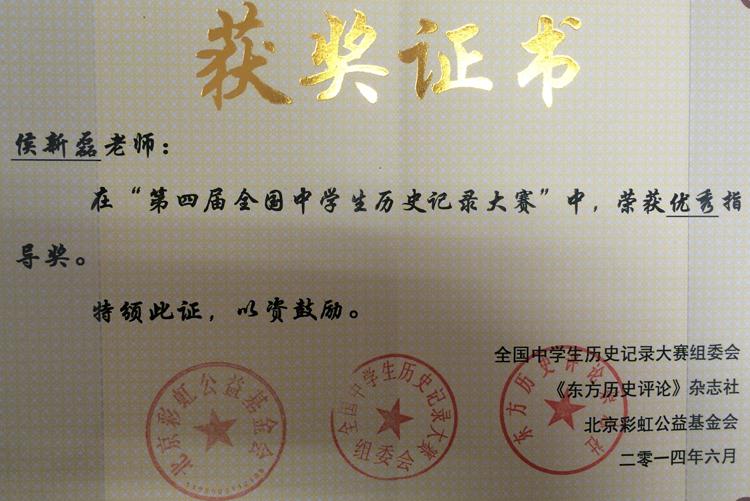 获奖证书
侯新磊老师：
在“第四届全国中学生历史记录大赛”中，荣获优秀指
导奖。
特颁此证，以资鼓励。
全国中学生历史记录大赛组委会
《东方历史评论》杂志社
北京彩虹公益基金会
二零一四年六月
北京彩虹公益基金会
全国中学生历史记录大赛
组委会
东方历史评论杂志社